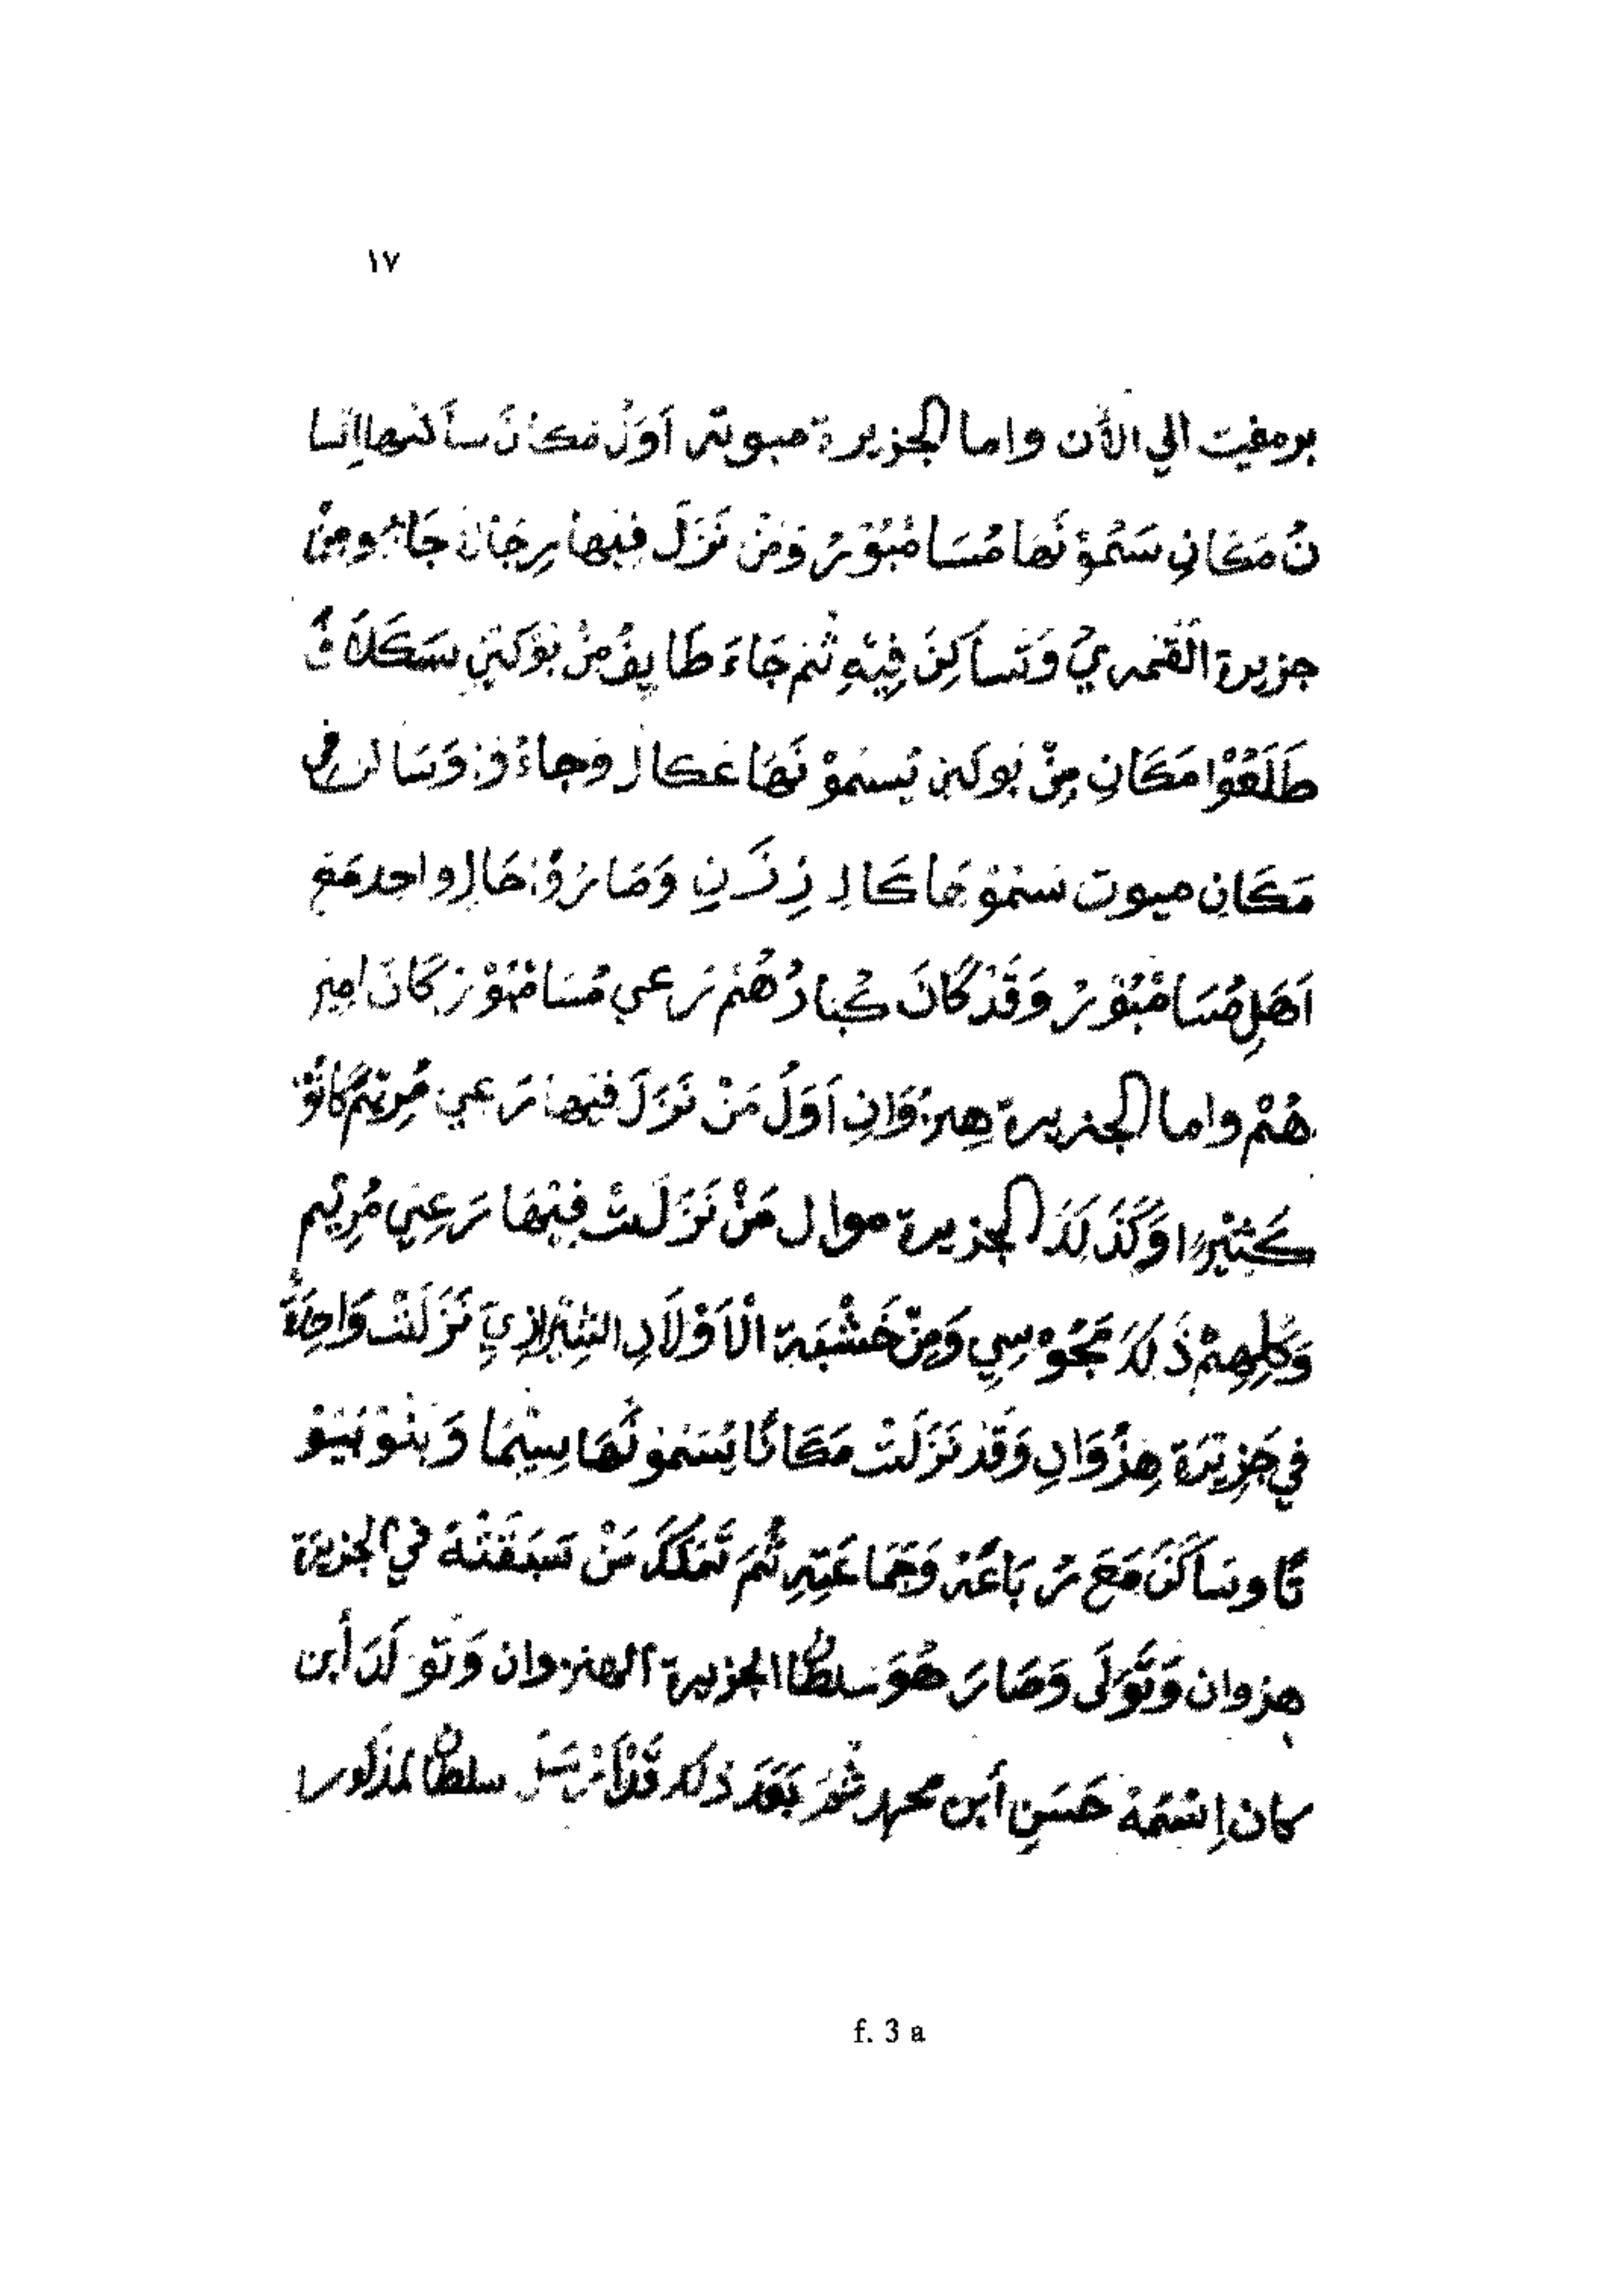 ١٧
برمفيت الي الأن واما الجزيرة ميوتة أَوَلُ مَكانَ سَأَلتها إنسا
نُ مَكَانِ سَمُّوْنَهَا مُسَامْبُوْرُ وَمَنْ نَزَلَ فِيْهَا رِجَالٌ جَاءُو مِنْ
جزيرة القُمْرِيْ وَتَسَأكِنَ فِيْهِ ثُمّ جَاءَ طَايِفُ مِنْ بُوْكَيْنِ سَكَلاَفَ
طَلَعُوْا مَكَانِ مِنْ بُوكَين يُسمُوْنَهَا عَكال وجاءُوْا وَسَاكن في
مَكَانِ ميوت سَمُوْهَا كَالِ وَصَارُوْا حَالِ واحد مَعَ
اَهَلِ مُسَامْبُوْرْ وَقَدْ كَانَ كُبَارُهُمْ رَعي مُسَامْبُوْرْ كَانَ امِيْر
هُمْ واما الجزيرة هِنزُوَانِ أَوَلُ مَنْ نَزَلَ فيها رَعِي مُرِيْمْ كَانُوْا
كَثِيْرًا وَكَذَلَكَ الجزيرة موال مَنْ نَزَلَتْ فِيْهَا رَعِي مُرِيْم
وَكُلِهِمْ ذَلَكَ مَجُوْسِي وَمِنْ خَشْبَة الْاَوْلَادِ الشِيْرَازِيِ نَزَلَتْ وَاحِدَةً
في جَزِيْرَة هِزُوَانِ وَقَدْ نَزَلَتْ مَكَانًا يُسَمُوْنَهَا سِيْمَا وَبَنُوْ بَيْتُوْ
تًا وسَأَكَنَ مَعَ رْ بَاعَهْ وَجَمَاعَتِهِ ثُمَ تَمَلَكَ مَنْ سَبَقَتْهَ في الجزيرة
هزوان وَتَوَلَى وَصَارَ هُوَ سلطان الجزيرة الهنزوان وَتَوَلَدَ أبن
كان إسْمُهُ حَسَنِ أبن محمد ثُمَ بَعْدَ ذلك قَدْ أَرْسَلَ سلطان المذكور
f. 3 a